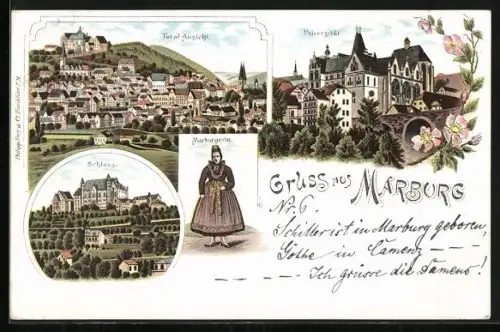 Total-Ansicht.
Universität
Philipp Frey & Co. Frankfurt a. M.
Marburgerin.
Schloss.
Gruss aus MARBURG
Nr. 6
Schiller ist in Marburg geboren,
Göthe in Camenz
Ich grüsse die Damens!